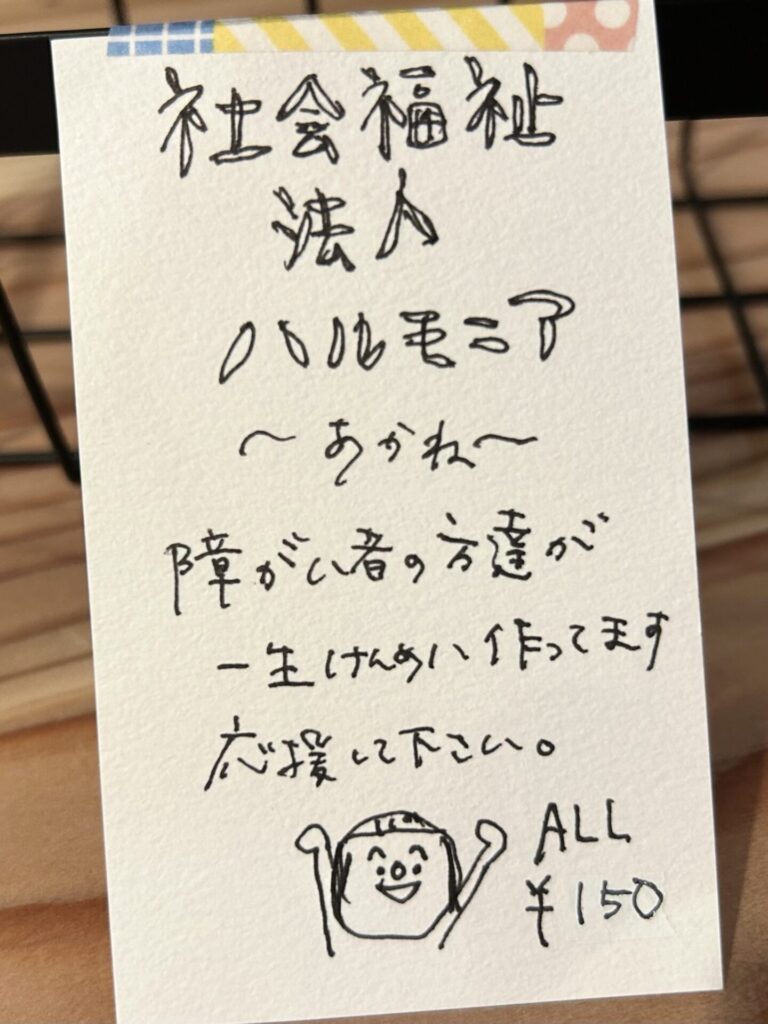 社会福祉
法人
ハルモニア
～あかね～
障がい者の方達が
一生けんめい作ってます
応援して下さい。
ALL
¥150